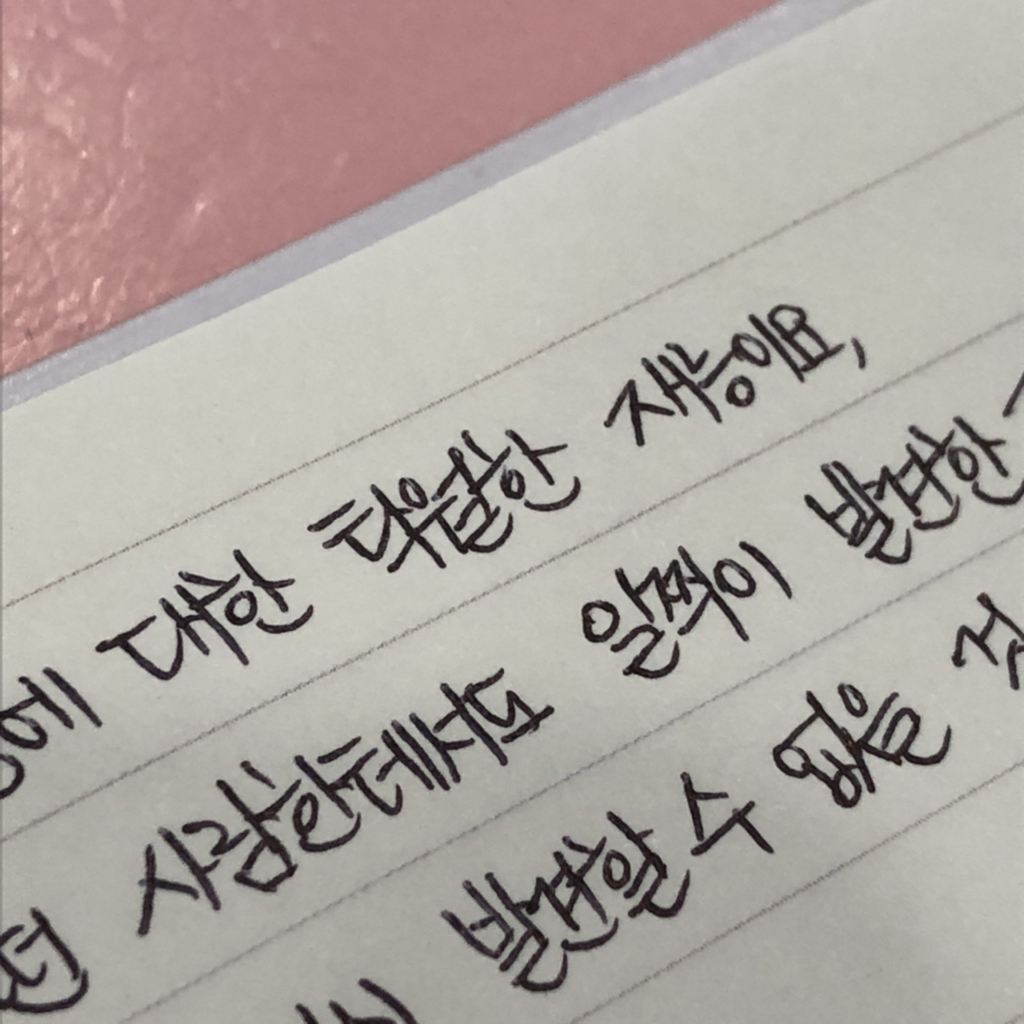 에 대한 탁월한 재능이요,
사람한테서도 일찍이 발견한
발견할 수 없을